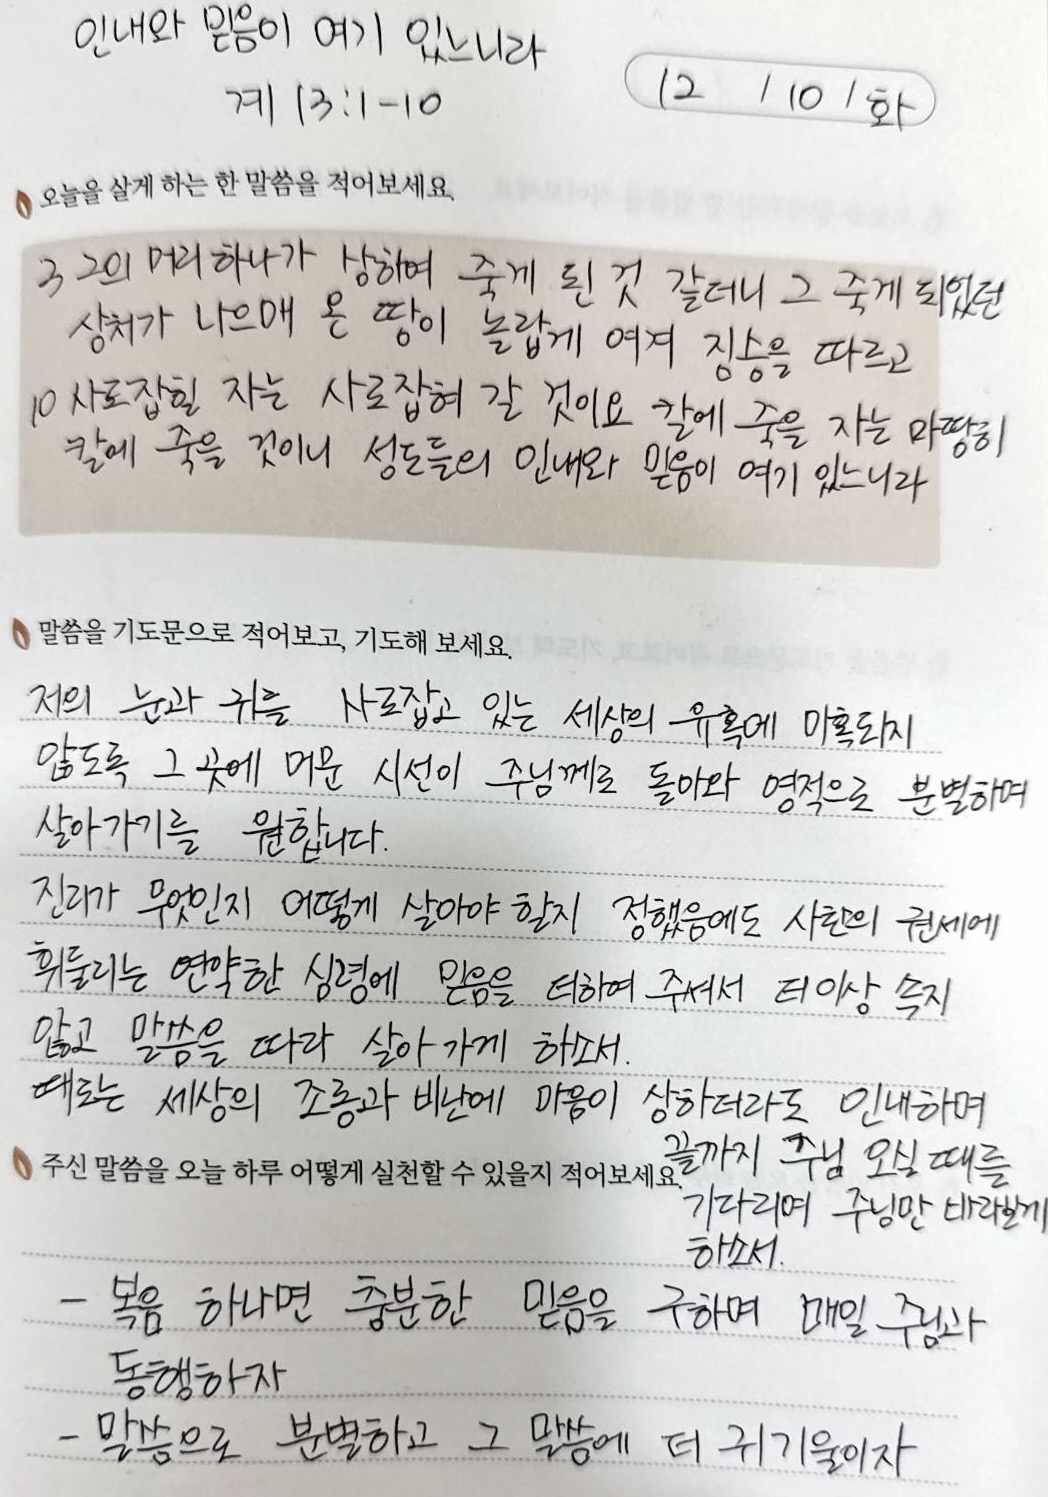 인내와 믿음이 여기 있느니라
계 13:1-10
12 / 10 / 화
오늘을 살게 하는 한 말씀을 적어보세요.
3 그의 머리 하나가 상하여 죽게 된 것 같더니 그 죽게 되었던
상처가 나으매 온 땅이 놀랍게 여겨 짐승을 따르고
10 사로잡힐 자는 사로잡혀 갈 것이요 칼에 죽을 자는 마땅히
칼에 죽을 것이니 성도들의 인내와 믿음이 여기 있느니라
말씀을 기도문으로 적어보고, 기도해 보세요.
저의 눈과 귀를 사로잡고 있는 세상의 유혹에 미혹되지
않도록 그 곳에 머문 시선이 주님께로 돌아와 영적으로 분별하며
살아가기를 원합니다.
진리가 무엇인지 어떻게 살아야 할지 정했음에도 사탄의 권세에
휘둘리는 연약한 심령에 믿음을 더하여 주셔서 더이상 속지
않고 말씀을 따라 살아가게 하소서.
때로는 세상의 조롱과 비난에 마음이 상하더라도 인내하며
끝까지 주님 오실 때를
기다리며 주님만 바라보게
하소서.
주신 말씀을 오늘 하루 어떻게 실천할 수 있을지 적어보세요.
- 복음 하나면 충분한 믿음을 구하며 매일 주님과
동행하자
- 말씀으로 분별하고 그 말씀에 더 귀기울이자